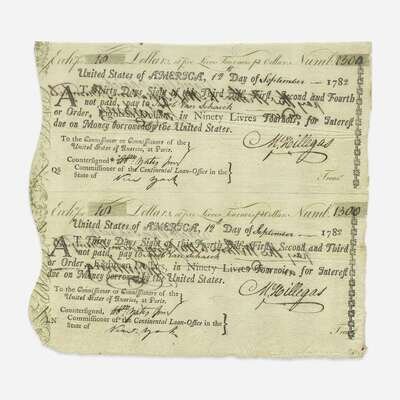 Exch. for 18 Dollars, at five Livres Tournois per Dollar. Numb. 1300
United States of AMERICA, 12th Day of September 1782
AT Thirty Days Sight of this Third, First, Second and Fourth
not paid, pay to Van Schaick
or Order, in Ninety Livres Tournois, for Interest
due on Money borrowed by the United States.
To the Commissioner or Commissioners of the
United States of America, at Paris.
M. Hillegas
Countersigned
Commissioner of the Continental Loan-Office in the
State of New York
Exch. for 18 Dollars, at five Livres Tournois per Dollar. Numb. 1300
United States of AMERICA, 12th Day of September 1782
AT Thirty Days Sight of this Fourth, First, Second and Third
not paid, pay to Van Schaick
or Order, in Ninety Livres Tournois, for Interest
due on Money borrowed by the United States.
To the Commissioner or Commissioners of the
United States of America, at Paris.
M. Hillegas
Countersigned,
Commissioner of the Continental Loan-Office in the
State of New York